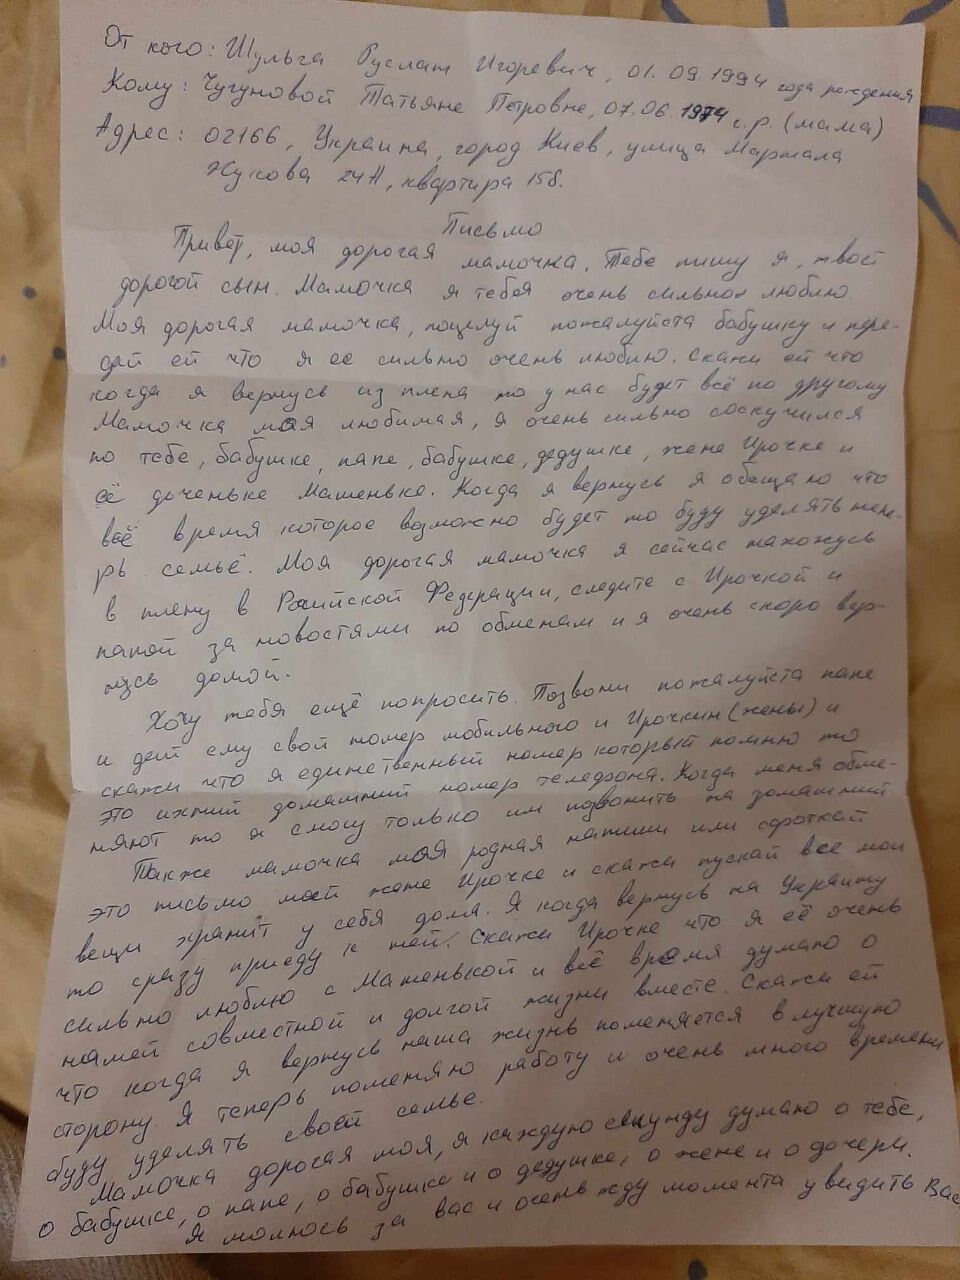 От кого: Шульга Руслан Игоревич, 01.09.1994 года рождения
Кому: Чугуновой Татьяне Петровне, 07.06.1974 г.р. (мама)
Адрес: 02166, Украина, город Киев, улица Маршала
Жукова 24А, квартира 156.
Письмо
Привет, моя дорогая мамочка. Тебе пишу я, твой
дорогой сын. Мамочка я тебя очень сильно люблю.
Моя дорогая мамочка, поцелуй пожалуйста бабушку и пере-
дай ей что я её сильно очень люблю. Скажи ей что
когда я вернусь из плена то у нас будет всё по другому
Мамочка моя любимая, я очень сильно соскучился
по тебе, бабушке, папе, бабушке, дедушке, жене Ирочке и
её доченьке Машеньке. Когда я вернусь я обещаю что
всё время которое возможно будет то буду уделять тепе-
рь семье. Моя дорогая мамочка я сейчас нахожусь
в плену в Российской Федерации, следите с Ирочкой и
папой за новостями по обменам и я очень скоро вер-
нусь домой.
Хочу тебя ещё попросить. Позвони пожалуйста папе
и дай ему свой номер мобильного и Ирочкин (жены) и
скажи что я единственный номер который помню то
это ихний домашний номер телефона. Когда меня обме-
няют то я смогу только им позвонить на домашний
Также мамочка моя родная напиши или сфоткай
это письмо моей жене Ирочке и скажи пускай все мои
вещи хранит у себя дома. Я когда вернусь на Украину
то сразу приеду к ней. Скажи Ирочке что я её очень
сильно люблю с Машенькой и всё время думаю о
нашей совместной и долгой жизни вместе. Скажи ей
что когда я вернусь наша жизнь поменяется в лучшую
сторону. Я теперь поменяю работу и очень много времени
буду уделять своей семье.
Мамочка дорогая моя, я каждую секунду думаю о тебе,
о бабушке, о папе, о бабушке и о дедушке, о жене и о дочери.
Я молюсь за вас и очень жду момента увидить Вас